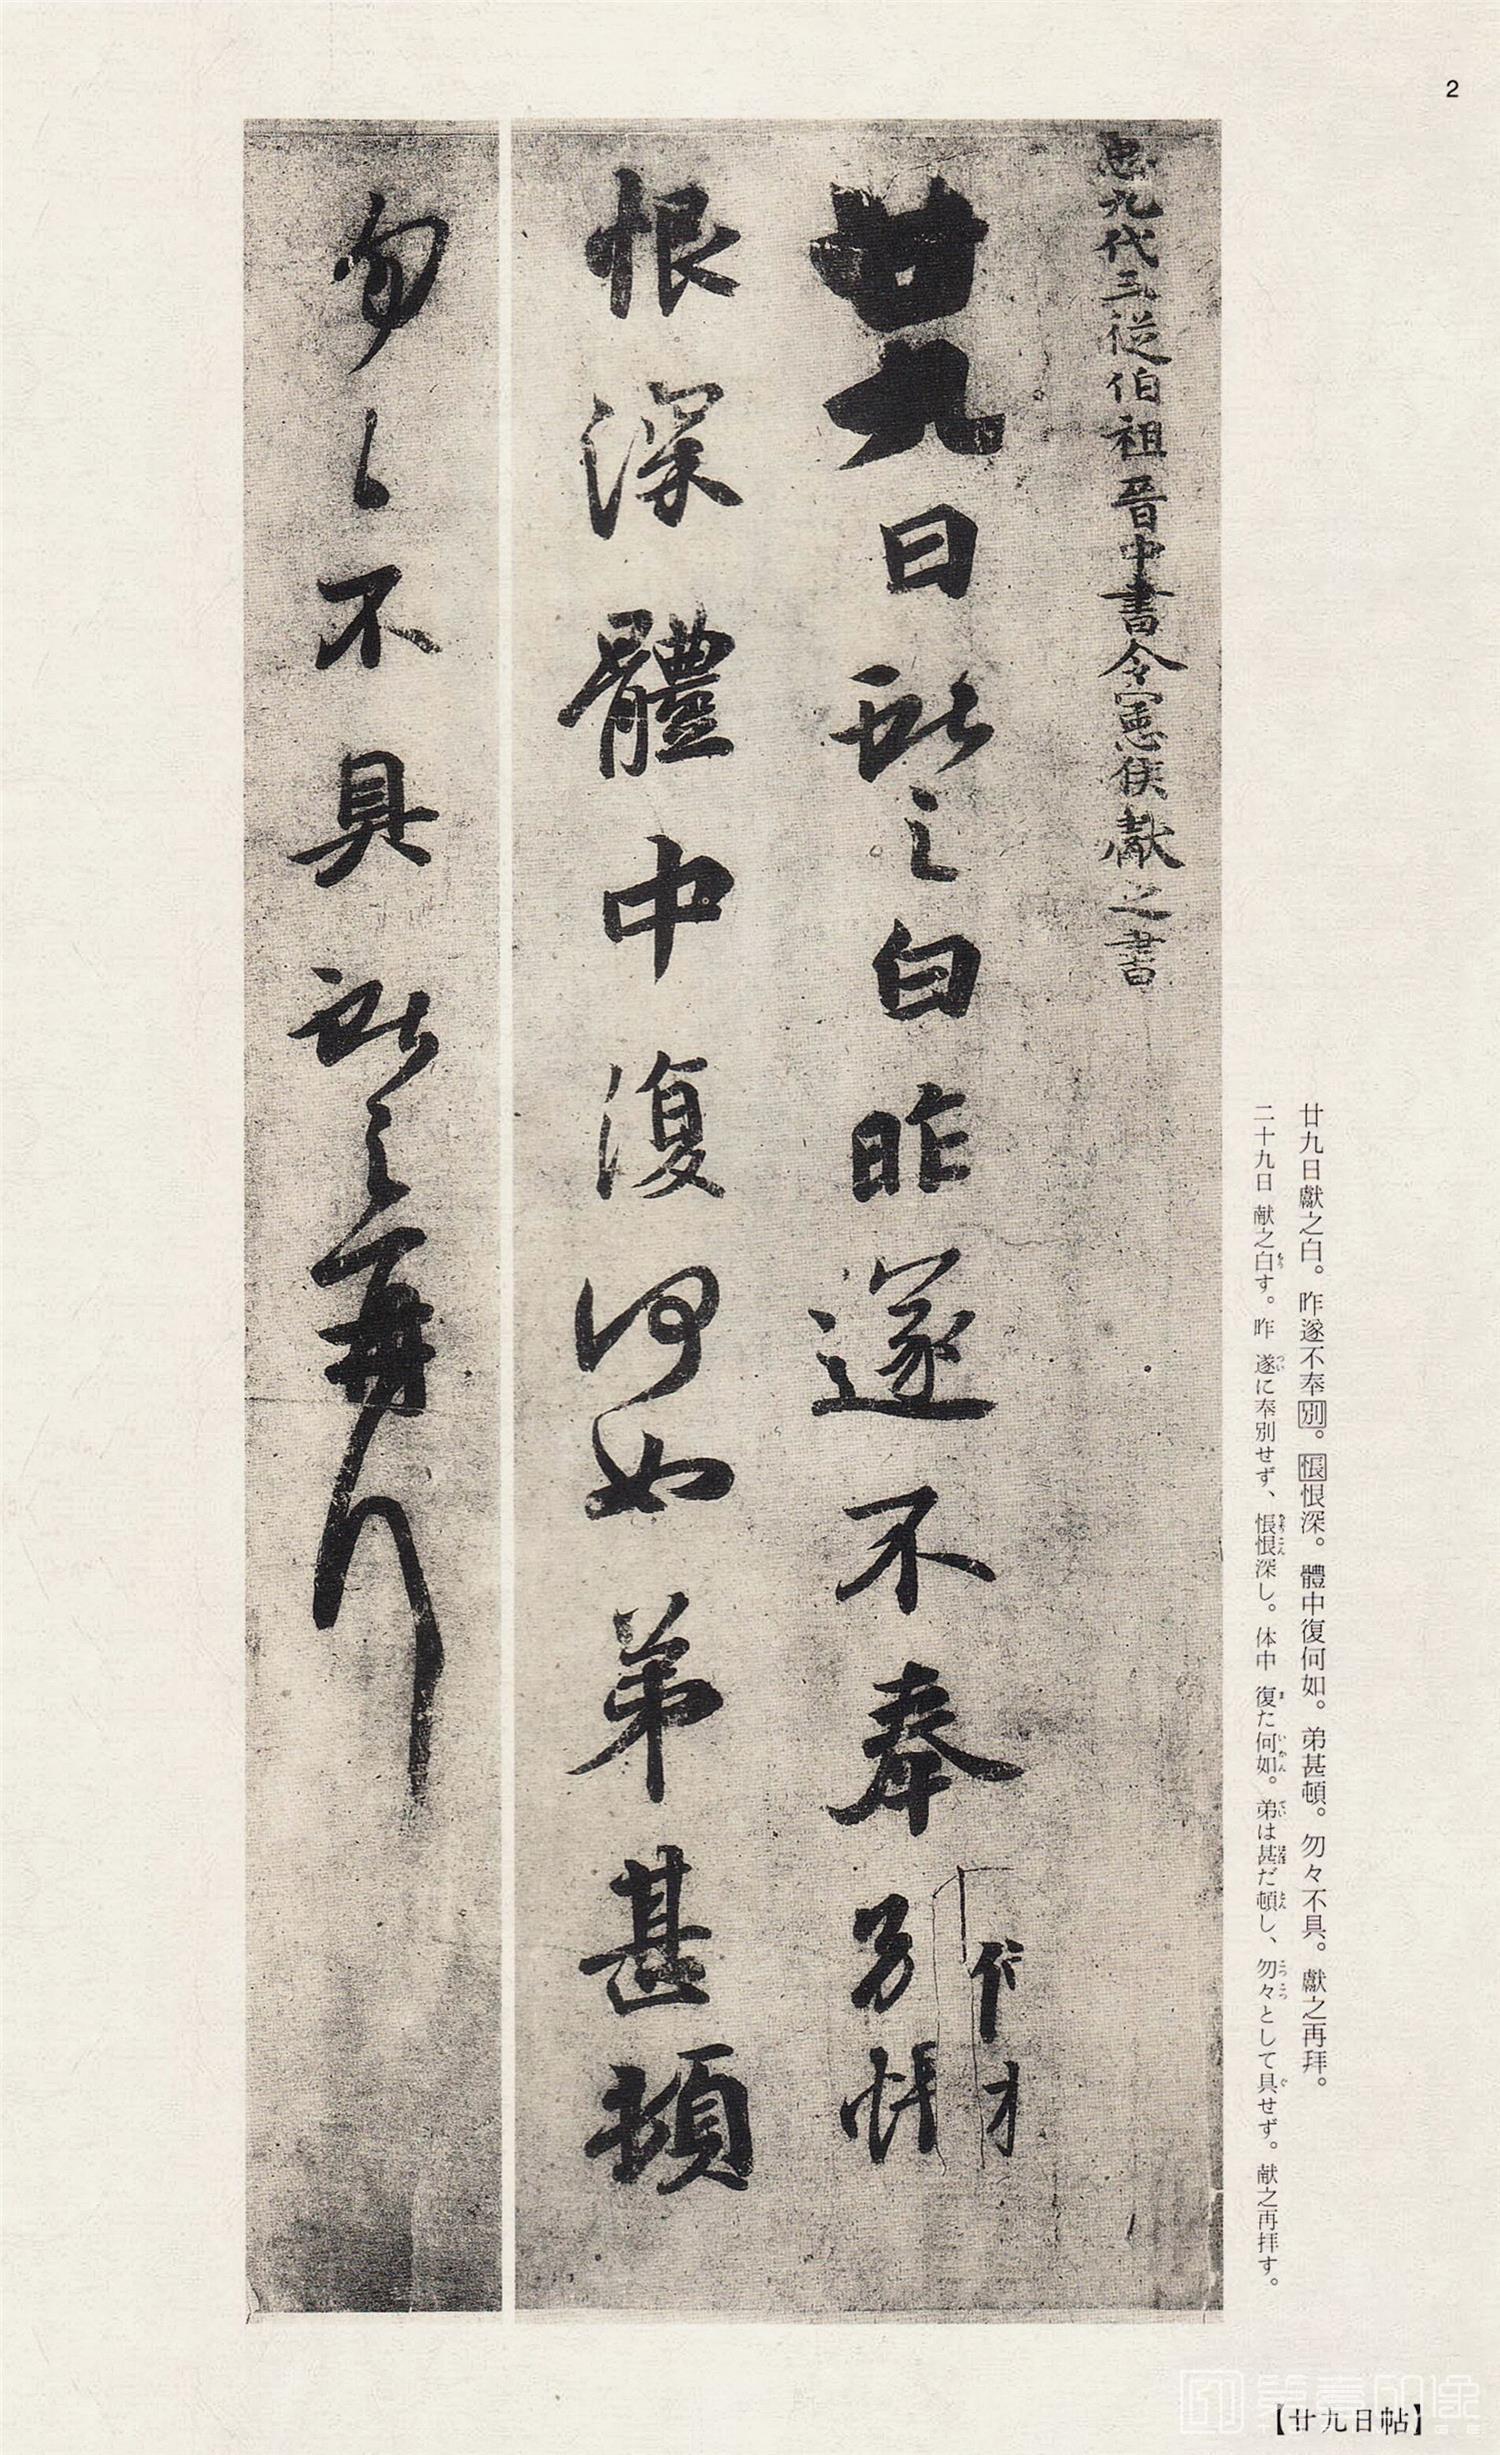 2
臣九代三從伯祖晉中書令憲侯獻之書
廿九日獻之白昨遂不奉別悵
恨深體中復何如弟甚頓
勿々不具獻之再拜
廿九日獻之白。昨遂不奉別。悵恨深。體中復何如。弟甚頓。勿々不具。獻之再拜。
二十九日 献之白す。昨 遂に奉別せず、悵恨深し。体中 復た何如。弟は甚だ頓し、勿々として具せず。献之再拝す。
【廿九日帖】